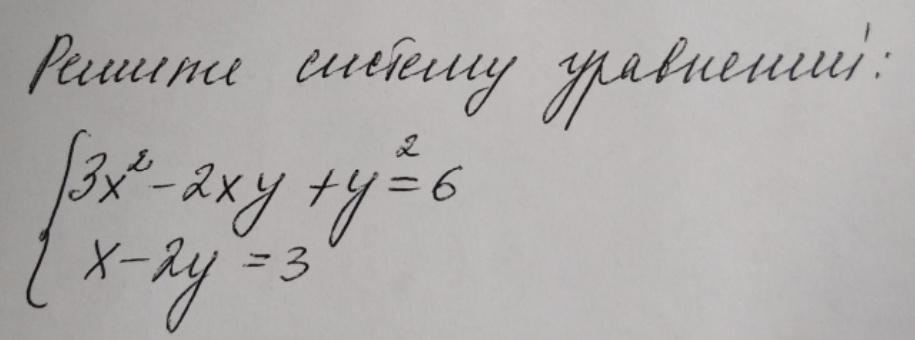 Решите систему уравнений:
3x² - 2xy + y² = 6
x - 2y = 3